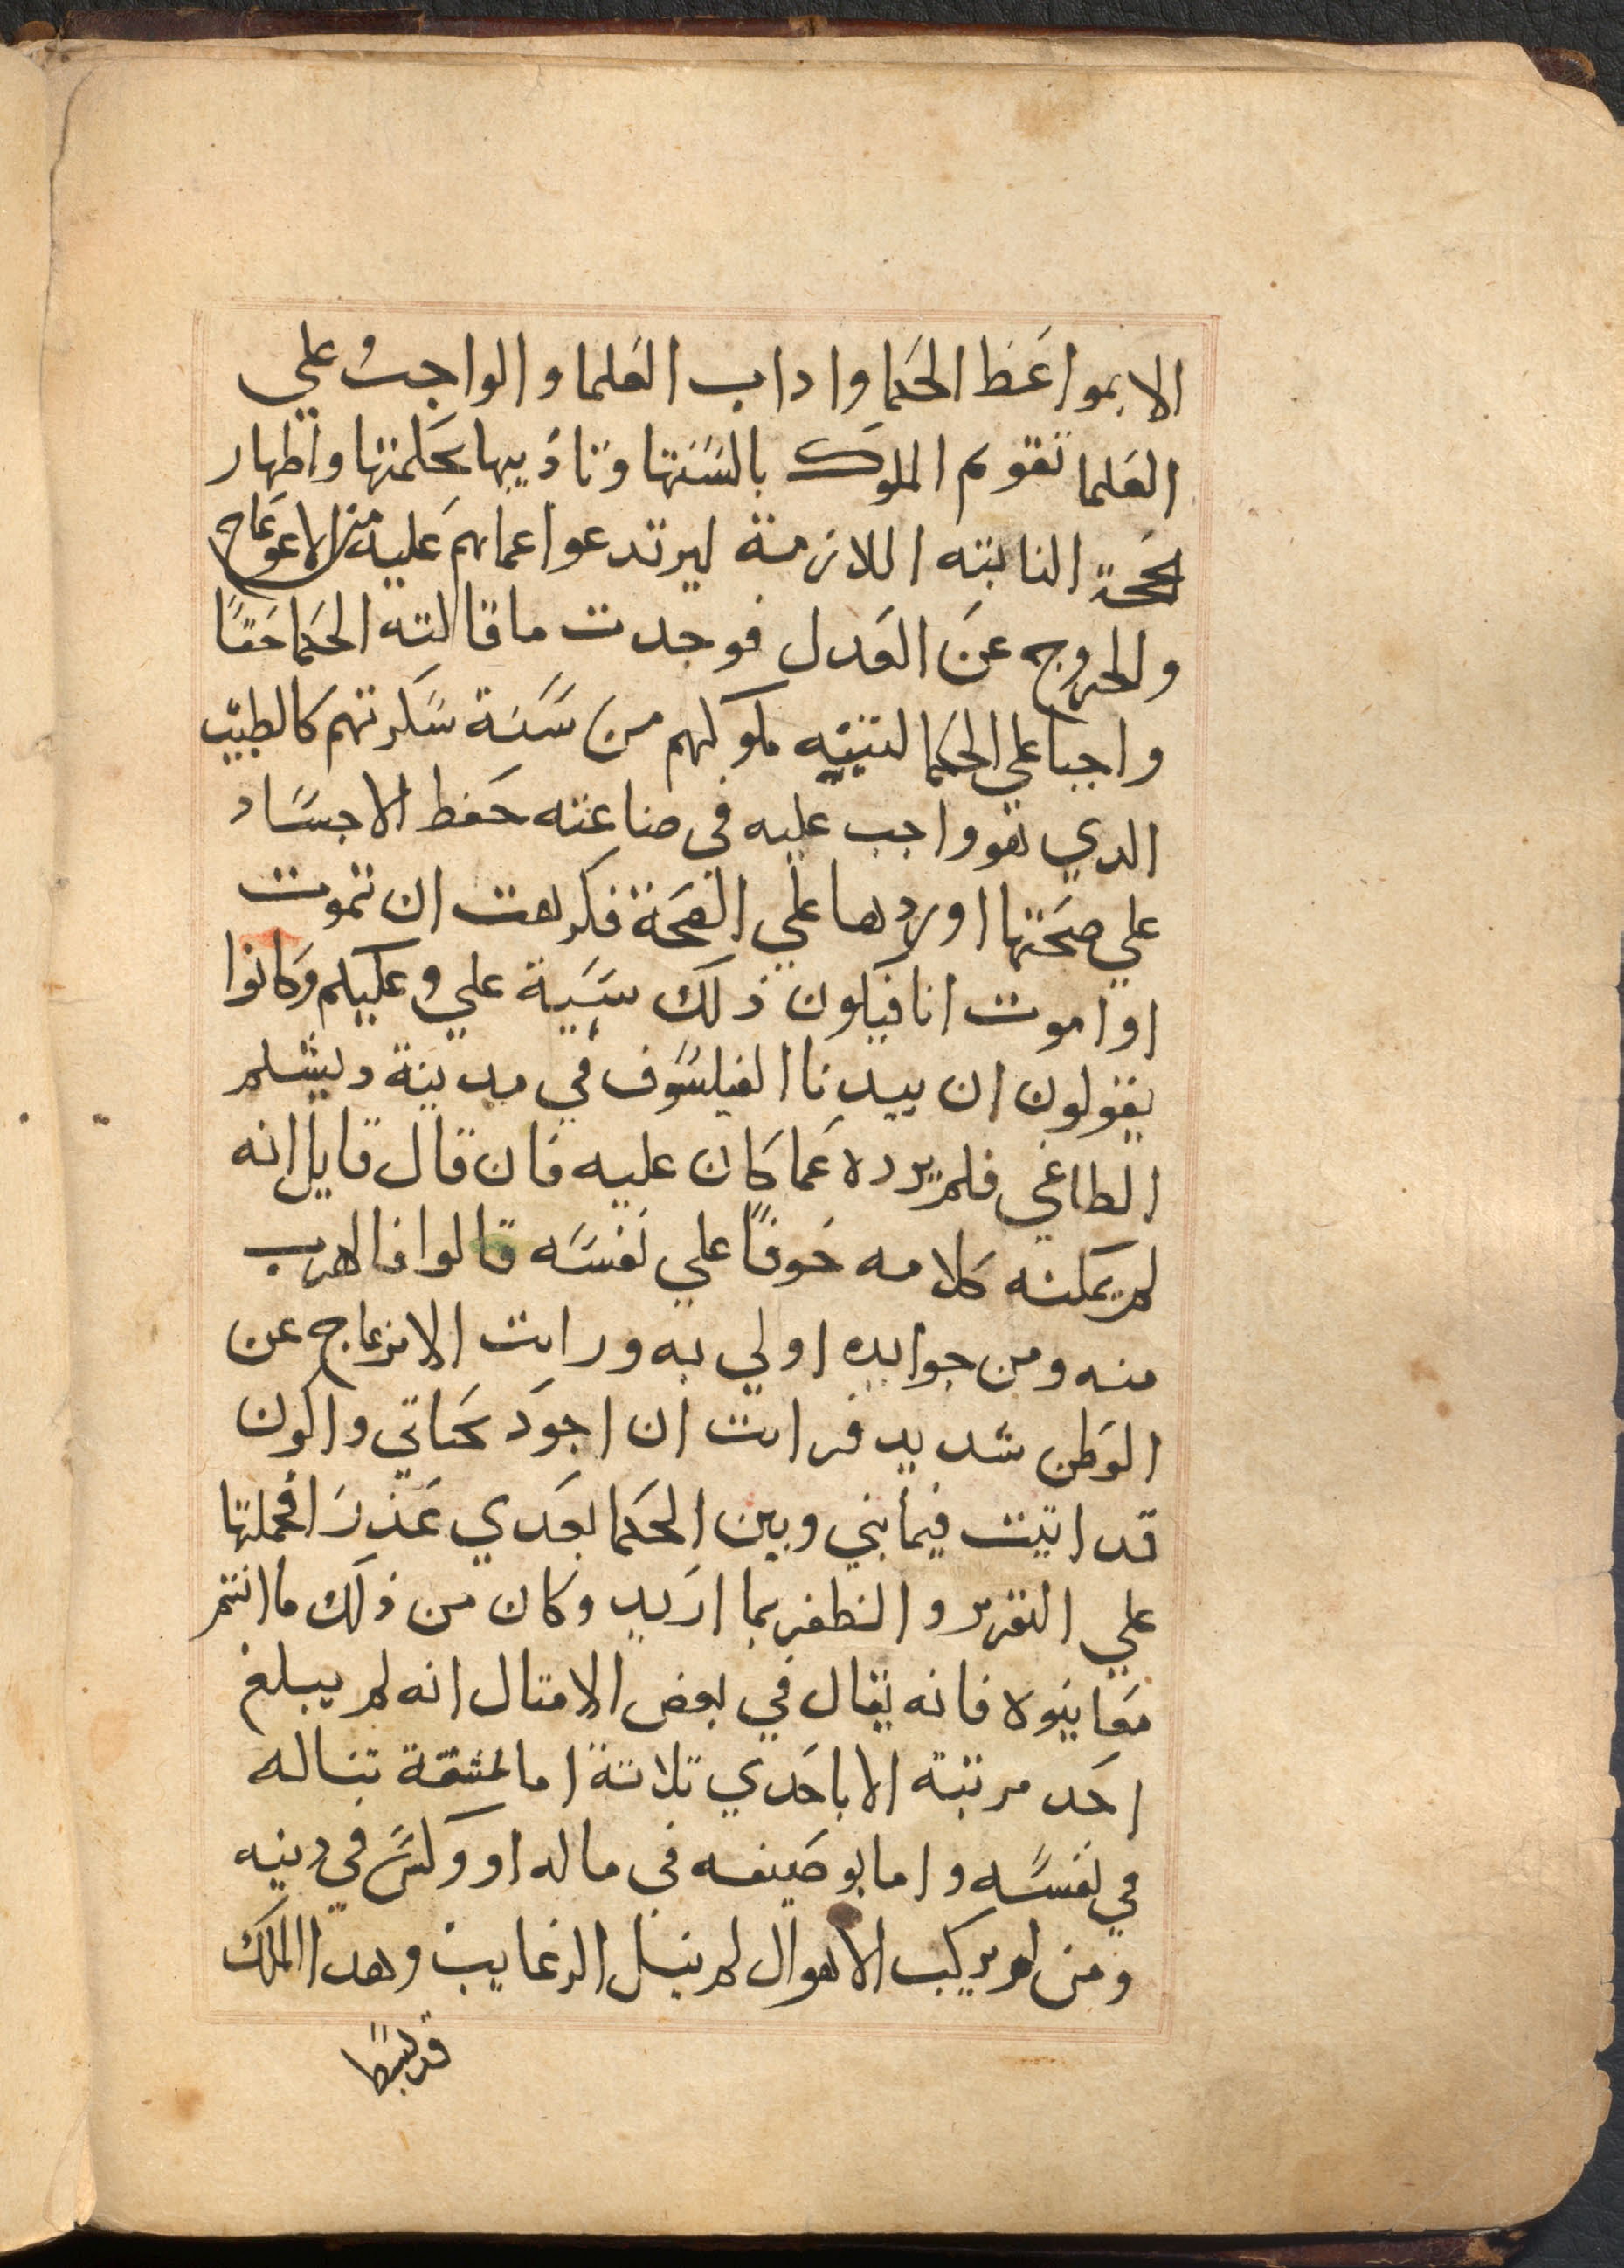 الا بمواعظ الحكما واداب العلما والواجب علي
العلما تقويم الملوك بالسنتها وتاديبها بحكمتها واظهار
الحجة النابته اللازمة ليرتدعوا عماهم عليه من الاعوجاج
والخروج عن العدل فوجدت ما قالته الحكما حقًا
واجبا علي الحكما لتنبيه ملوكهم من سنة سكرتهم كالطبيب
الدي هو واجب عليه في صناعته حفظ الاجساد
علي صحتها اوردها علي الصحة فكرهت ان تموت
او اموت انا فيكون ذلك سبية علي وعليكم وكانوا
يقولون ان بيدنا الفيلسوف في مدينة دبشلم
الطاغي فلم يرده عما كان عليه فان قال قايل انه
لم يمكنه كلامه خوفًا علي نفسه قالوا فالهرب
منه ومن جواره اولي به ورايت الانزعاج عن
الوطن شديد فرايت ان اجود بحياتي واكون
قد اتيت فيما بيني وبين الحكما بعدي عذرا فحملتها
علي التغرير والظفر بما اريد وكان من ذلك ما انتم
معاينوه فانه يقال في بعض الامتال انه لم يبلغ
احد مرتبة الا باحدي تلاتة اما بمشقة تناله
في نفسه واما بوضيعه في ماله او وكس في دينه
ومن لم يركب الاهوال لم ينل الرغايب وهدا الملك